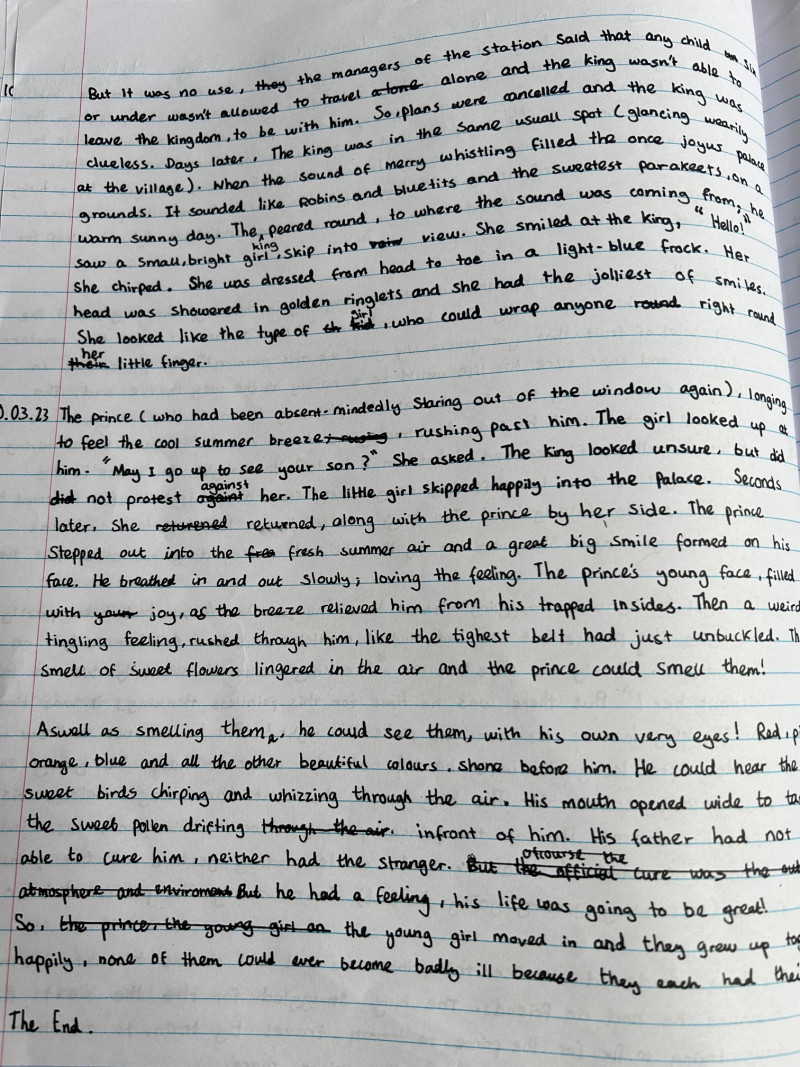 10
But it was no use, they the managers of the station said that any child six
or under wasn't allowed to travel alone alone and the king wasn't able to
leave the kingdom, to be with him. So, plans were cancelled and the king was
clueless. Days later, The king was in the same usuall spot (glancing wearily
at the village). When the sound of merry whistling filled the once joyus palace
grounds. It sounded like Robins and bluetits and the sweetest parakeets, on a
warm sunny day. The king peered round, to where the sound was coming from; he
saw a small, bright girl, skip into view. She smiled at the king, "Hello!"
She chirped. She was dressed from head to toe in a light-blue frock. Her
head was showered in golden ringlets and she had the jolliest of smiles.
She looked like the type of th kid girl, who could wrap anyone round right round
their her little finger.
.03.23 The prince (who had been absent-mindedly staring out of the window again), longing
to feel the cool summer breeze, rushing past him. The girl looked up at
him. "May I go up to see your son?" She asked. The king looked unsure, but did
did not protest against against her. The little girl skipped happily into the palace. Seconds
later, She returened returned, along with the prince by her side. The prince
stepped out into the frea fresh summer air and a great big smile formed on his
face. He breathed in and out slowly; loving the feeling. The prince's young face, filled
with your joy, as the breeze relieved him from his trapped insides. Then a weird
tingling feeling, rushed through him, like the tighest belt had just unbuckled. Th
smell of sweet flowers lingered in the air and the prince could smell them!
Aswell as smelling them, he could see them, with his own very eyes! Red, pi
orange, blue and all the other beautiful colours, shone before him. He could hear the
sweet birds chirping and whizzing through the air. His mouth opened wide to ta
the sweet pollen drifting through the air. infront of him. His father had not
able to cure him, neither had the stranger. But ofcourse the the official cure was the out
atmosphere and enviroment But he had a feeling, his life was going to be great!
So, the prince, the young girl an the young girl moved in and they grew up tog
happily, none of them could ever become badly ill because they each had thei
The End.